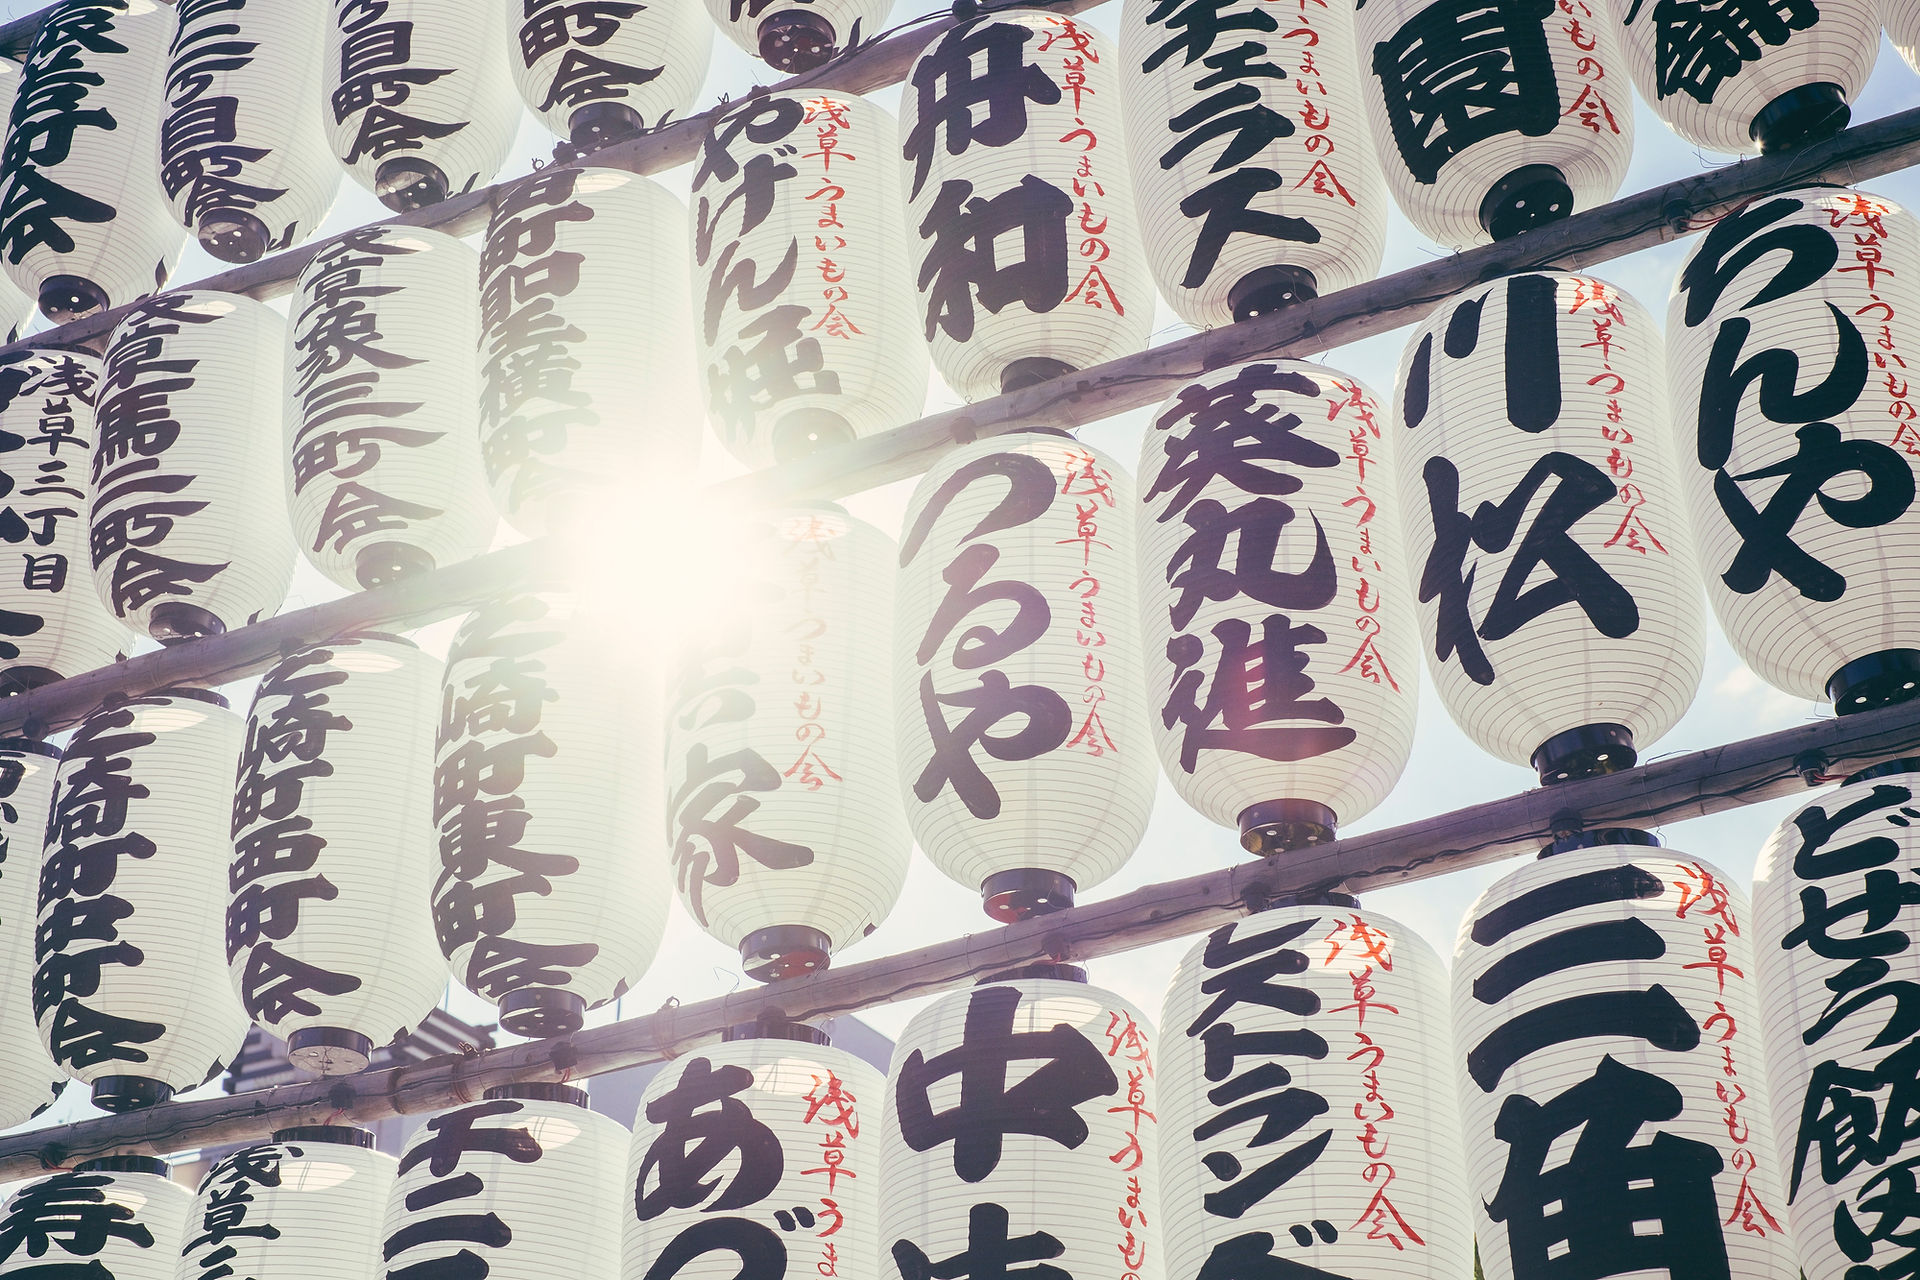 町会
二丁目町会
目町会
町会
浅草うまいもの会
やげん堀
浅草うまいもの会
舟和
浅草うまいもの会
ラス
うまいもの会
園
いもの会
浅草三丁目
浅草馬三町会
浅草象三町会
町聖横町会
浅草うまいもの会
家
浅草うまいもの会
つるや
浅草うまいもの会
葵丸進
浅草うまいもの会
川松
浅草うまいもの会
ちんや
浅草うまいもの会
芝崎町中町会
芝崎町西町会
芝崎町東町会
寿
浅草
浅草うま
あづ
浅草うまいも
中
浅草うまいもの会
ストラン
浅草うまいもの会
三角
どぜう飯田